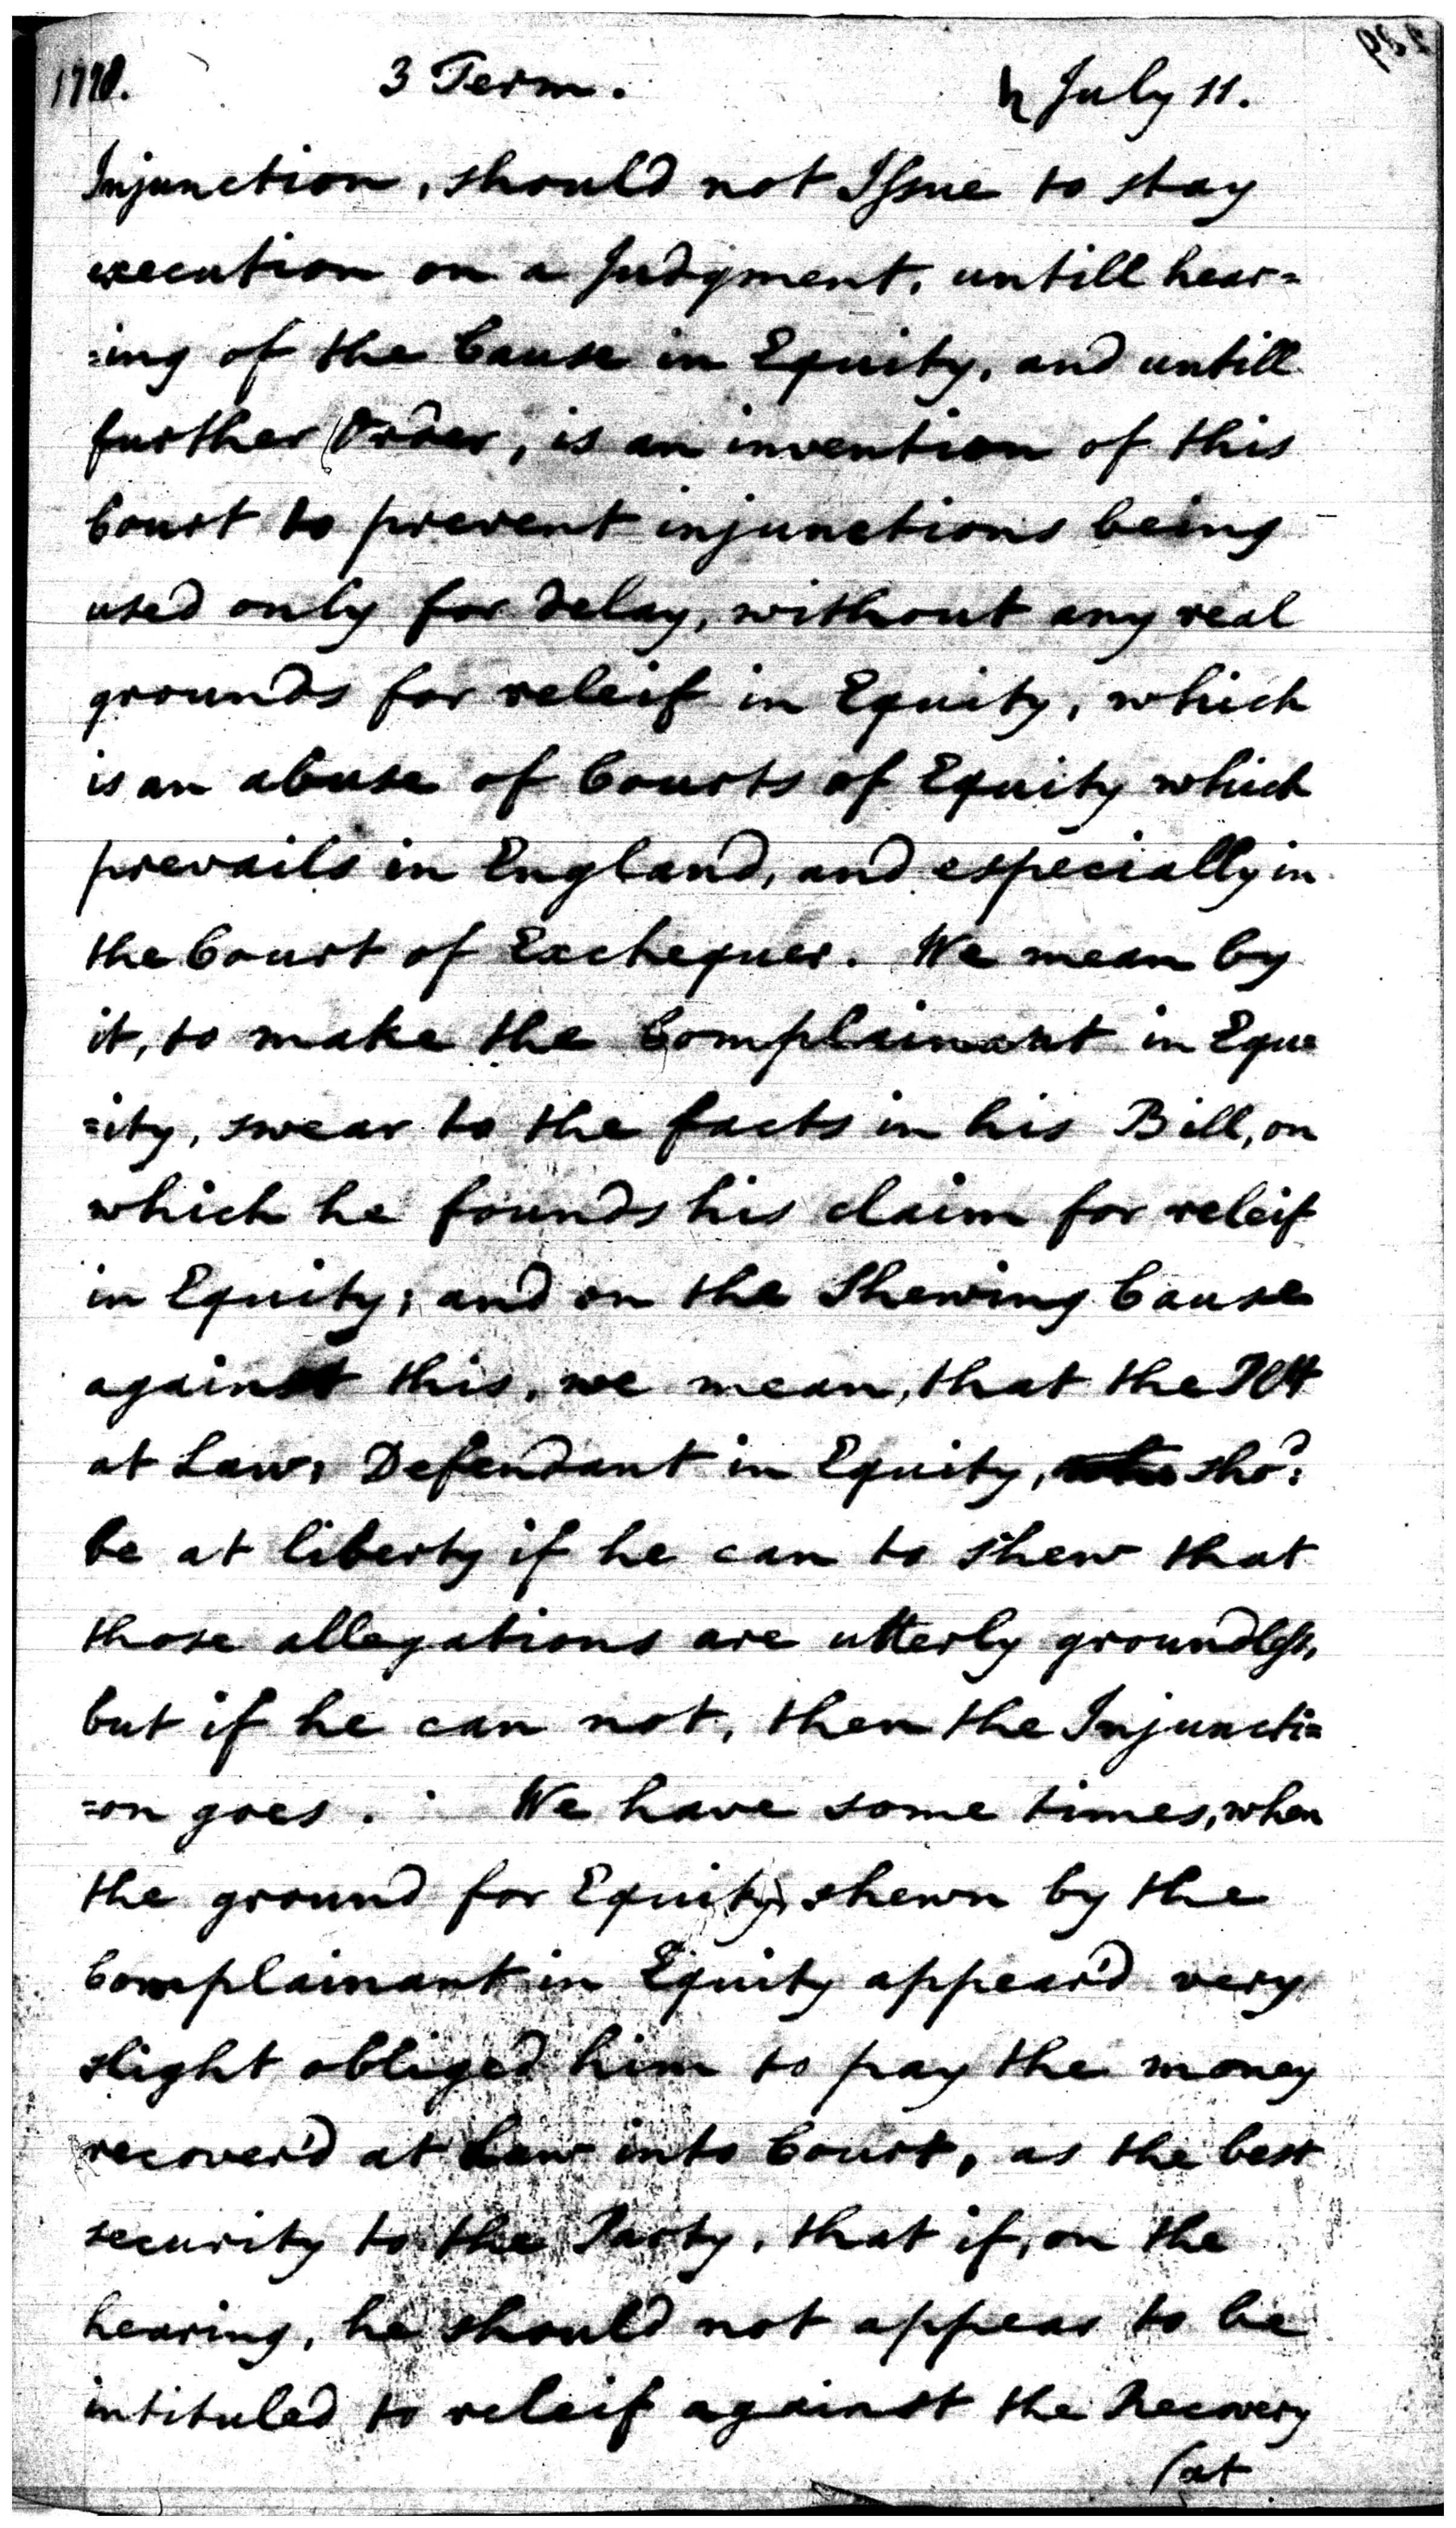 1778. 3 Term. ♄ July 11.
Injunction, should not Issue to stay
execution on a Judgment, untill hear=
=ing of the Cause in Equity, and untill
further Order, is an invention of this
Court to prevent injunctions being
used only for delay, without any real
grounds for releif in Equity, which
is an abuse of Courts of Equity which
prevails in England, and especially in
the Court of Exchequer. We mean by
it, to make the Complainant in Equ=
=ity, swear to the facts in his Bill, on
which he founds his claim for releif
in Equity; and on the Shewing Cause
against this, we mean, that the Plt
at Law, Defendant in Equity, sho.d
be at liberty if he can to shew that
those allegations are utterly groundless,
but if he can not, then the Injuncti=
=on goes. We have some times, when
the ground for Equity, shewn by the
Complainant in Equity appear'd very
slight obliged him to pay the money
recover'd at Law into Court, as the best
security to the Party, that if, on the
hearing, he should not appear to be
intituled to releif against the Recovery
(at